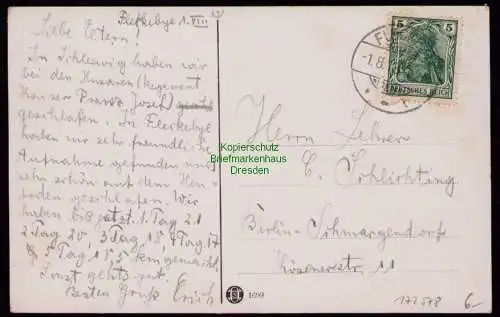 Fleckebye 1. VIII 13
Liebe Eltern!
In Schleswig haben wir
bei den Husaren (Regiment
Kaiser Franz Josef)
geschlafen. In Fleckebye
haben wir sehr freundliche
Aufnahme gefunden und
sehr schön auf dem Heu-
boden geschlafen. Wir
haben bis jetzt 1. Tag 21
2 Tag 20, 3 Tag 15, 4 Tag 17
5 Tag 15,5 km gemacht.
Sonst gehts gut.
Besten Gruß Erich
5
DEUTSCHES REICH
FL
-1.8.
Herrn Lehrer
E. Schlichting
Berlin-Schmargendorf
Kösenerstr. 11
Kopierschutz
Briefmarkenhaus
Dresden
1699
172578
6.-